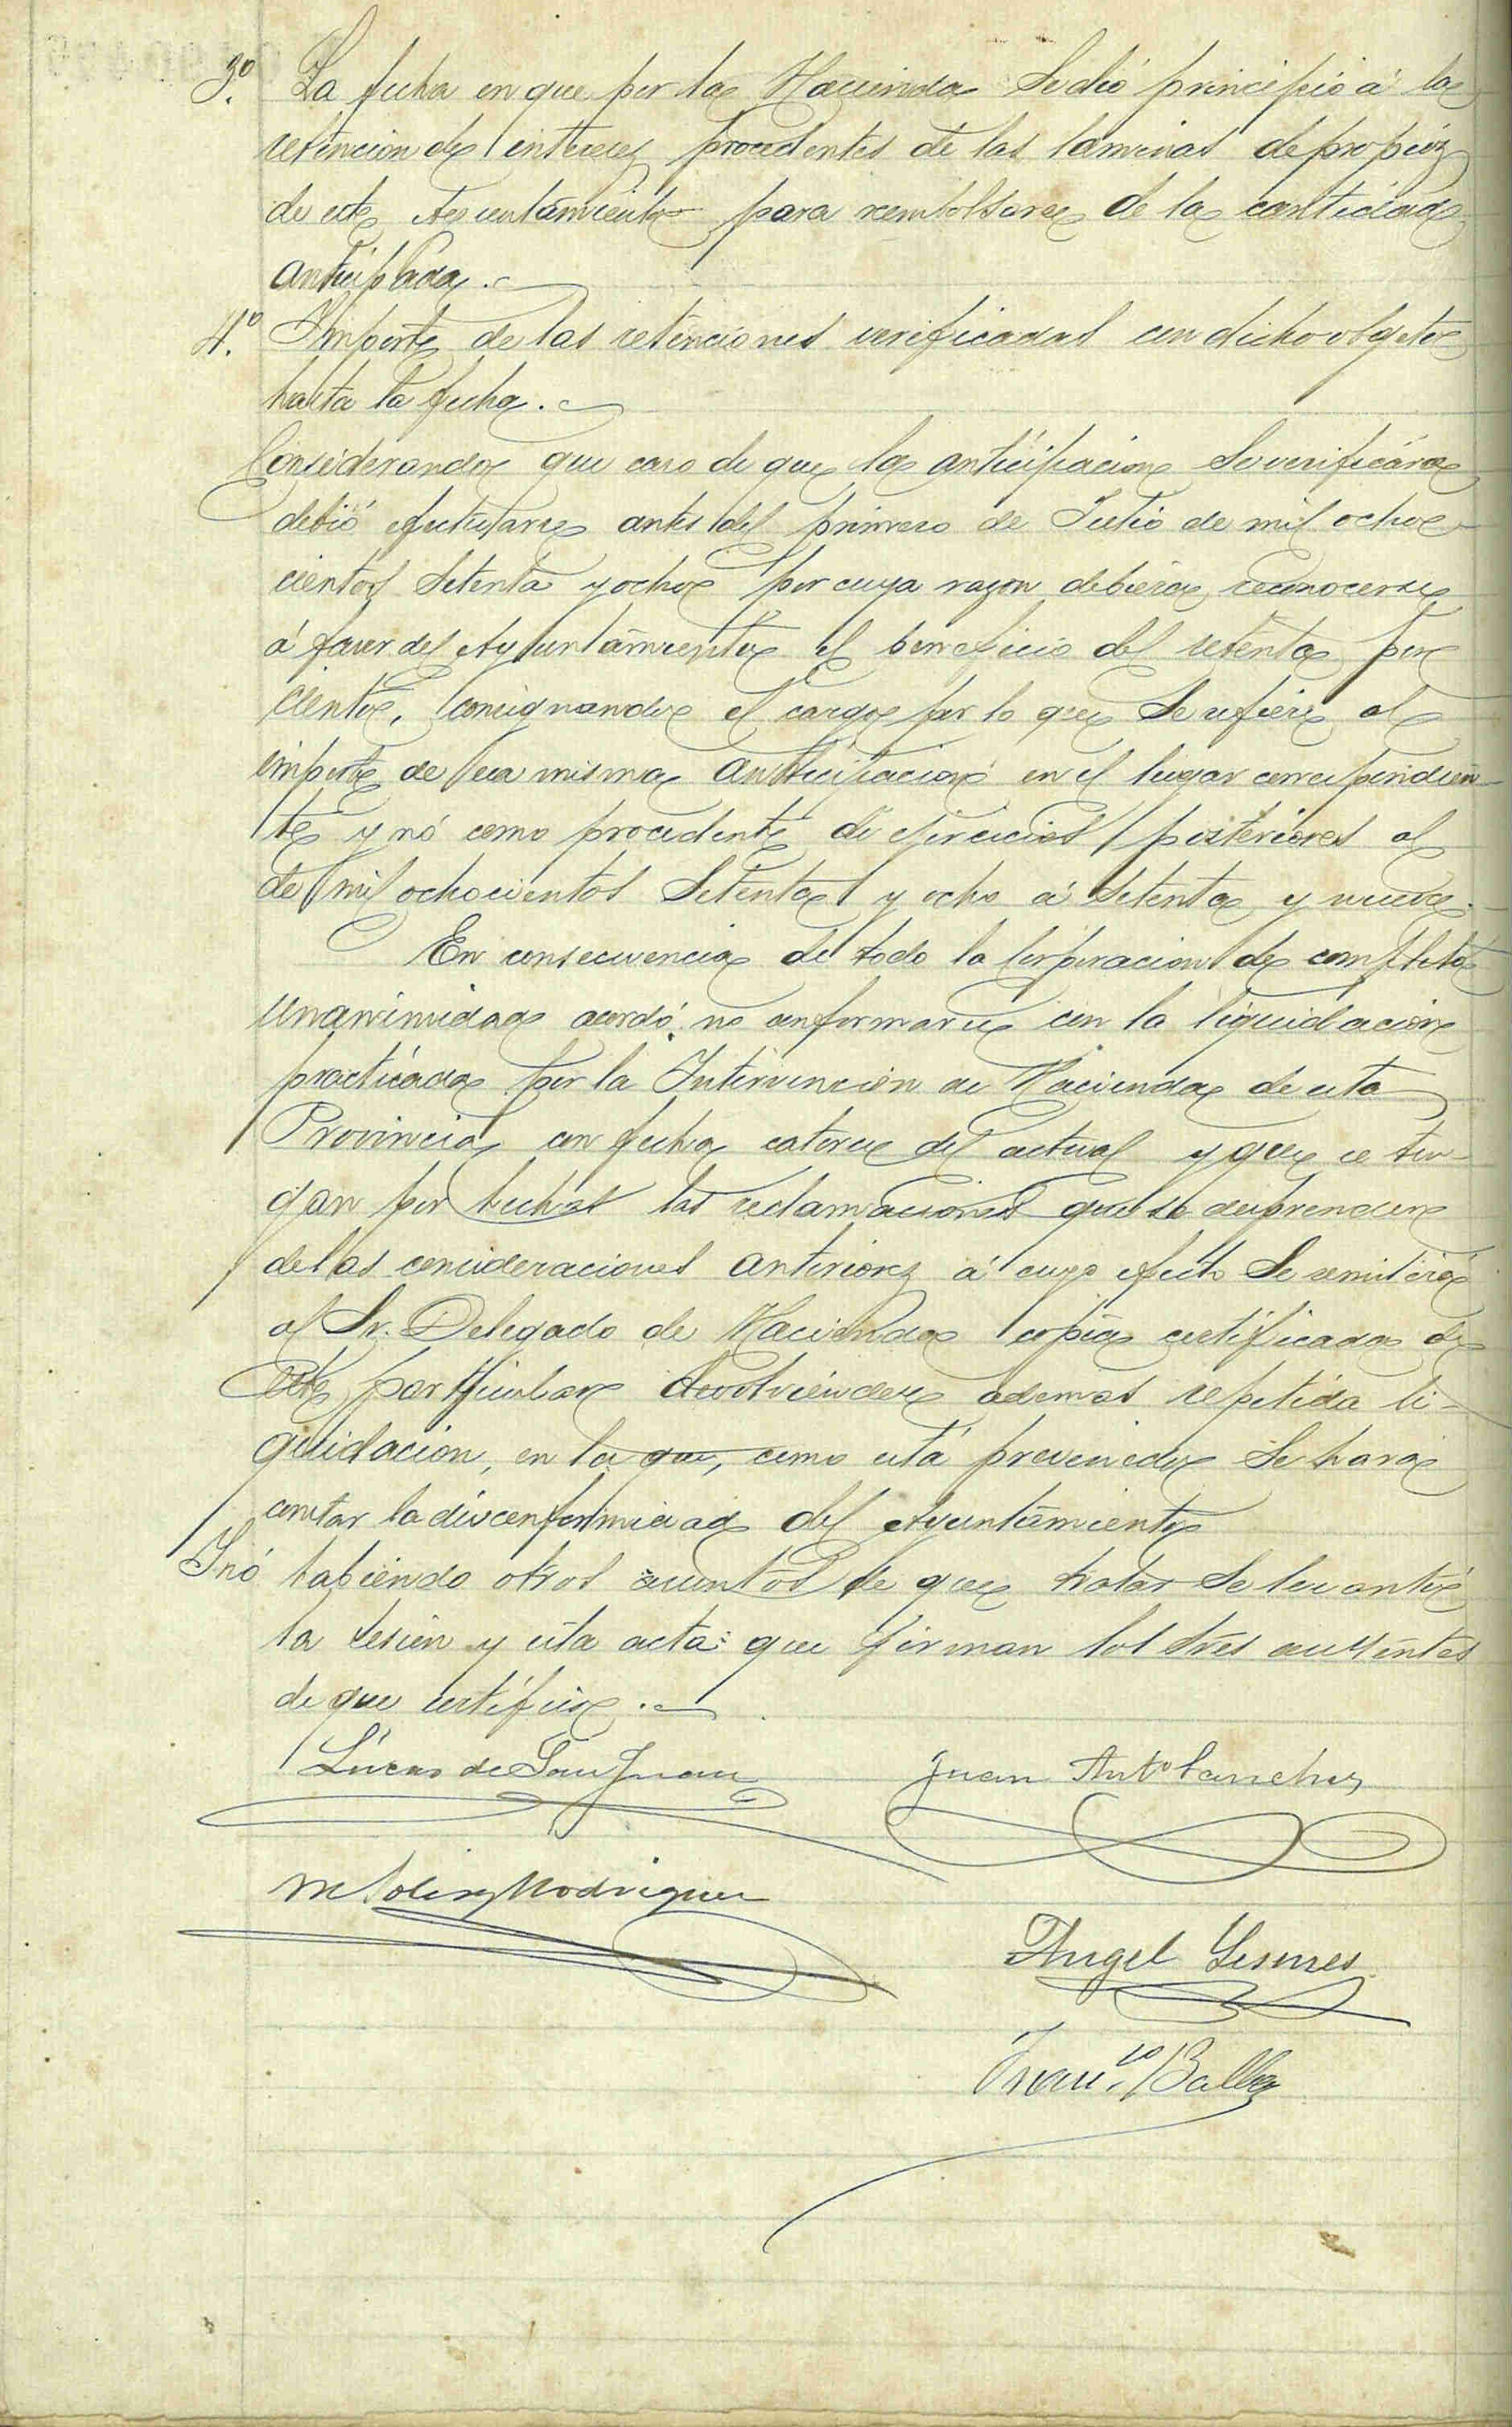 3º. La fecha en que por la Hacienda se dió principio á la
retencion de intereses procedentes de las laminas de propios
de este Ayuntamiento para reembolsarse de la cantidad
anticipada.
4º. Importe de las retenciones verificadas con dicho objeto
hasta la fecha.
Considerando que caso de que la anticipacion se verificára
debió efectuarse antes del primero de Julio de mil ocho-
cientos setenta y ocho por cuya razon debiera reconocerse
á favor del Ayuntamiento el beneficio del setenta por
ciento, consignando el cargo por lo que se refiere al
importe de esa misma anticipacion en el lugar correspondien-
te y nó como procedente de ejercicios posteriores al
de mil ochocientos setenta y ocho á setenta y nueve.
En consecuencia de todo la Corporacion de completa
unanimidad acordó no conformarse con la liquidacion
practicada por la Intervencion de Hacienda de esta
Provincia con fecha catorce del actual y que se ten-
gan por hechas las reclamaciones que se desprenden
de las consideraciones anteriores á cuyo efecto se remitirá
al Sr. Delegado de Hacienda copia certificada de
este particular devolviendose ademas repetida li-
quidacion, en la que, como está prevenido se hará
constar la disconformidad del Ayuntamiento
Y nó habiendo otros asuntos de que tratar se levantó
la sesion y esta acta que firman los Sres asistentes
de que certifico.
Lúcas de San Juan Juan Antº Sanchez
M Solis Rodriguez
Angel Lesmes
Franco. Balba